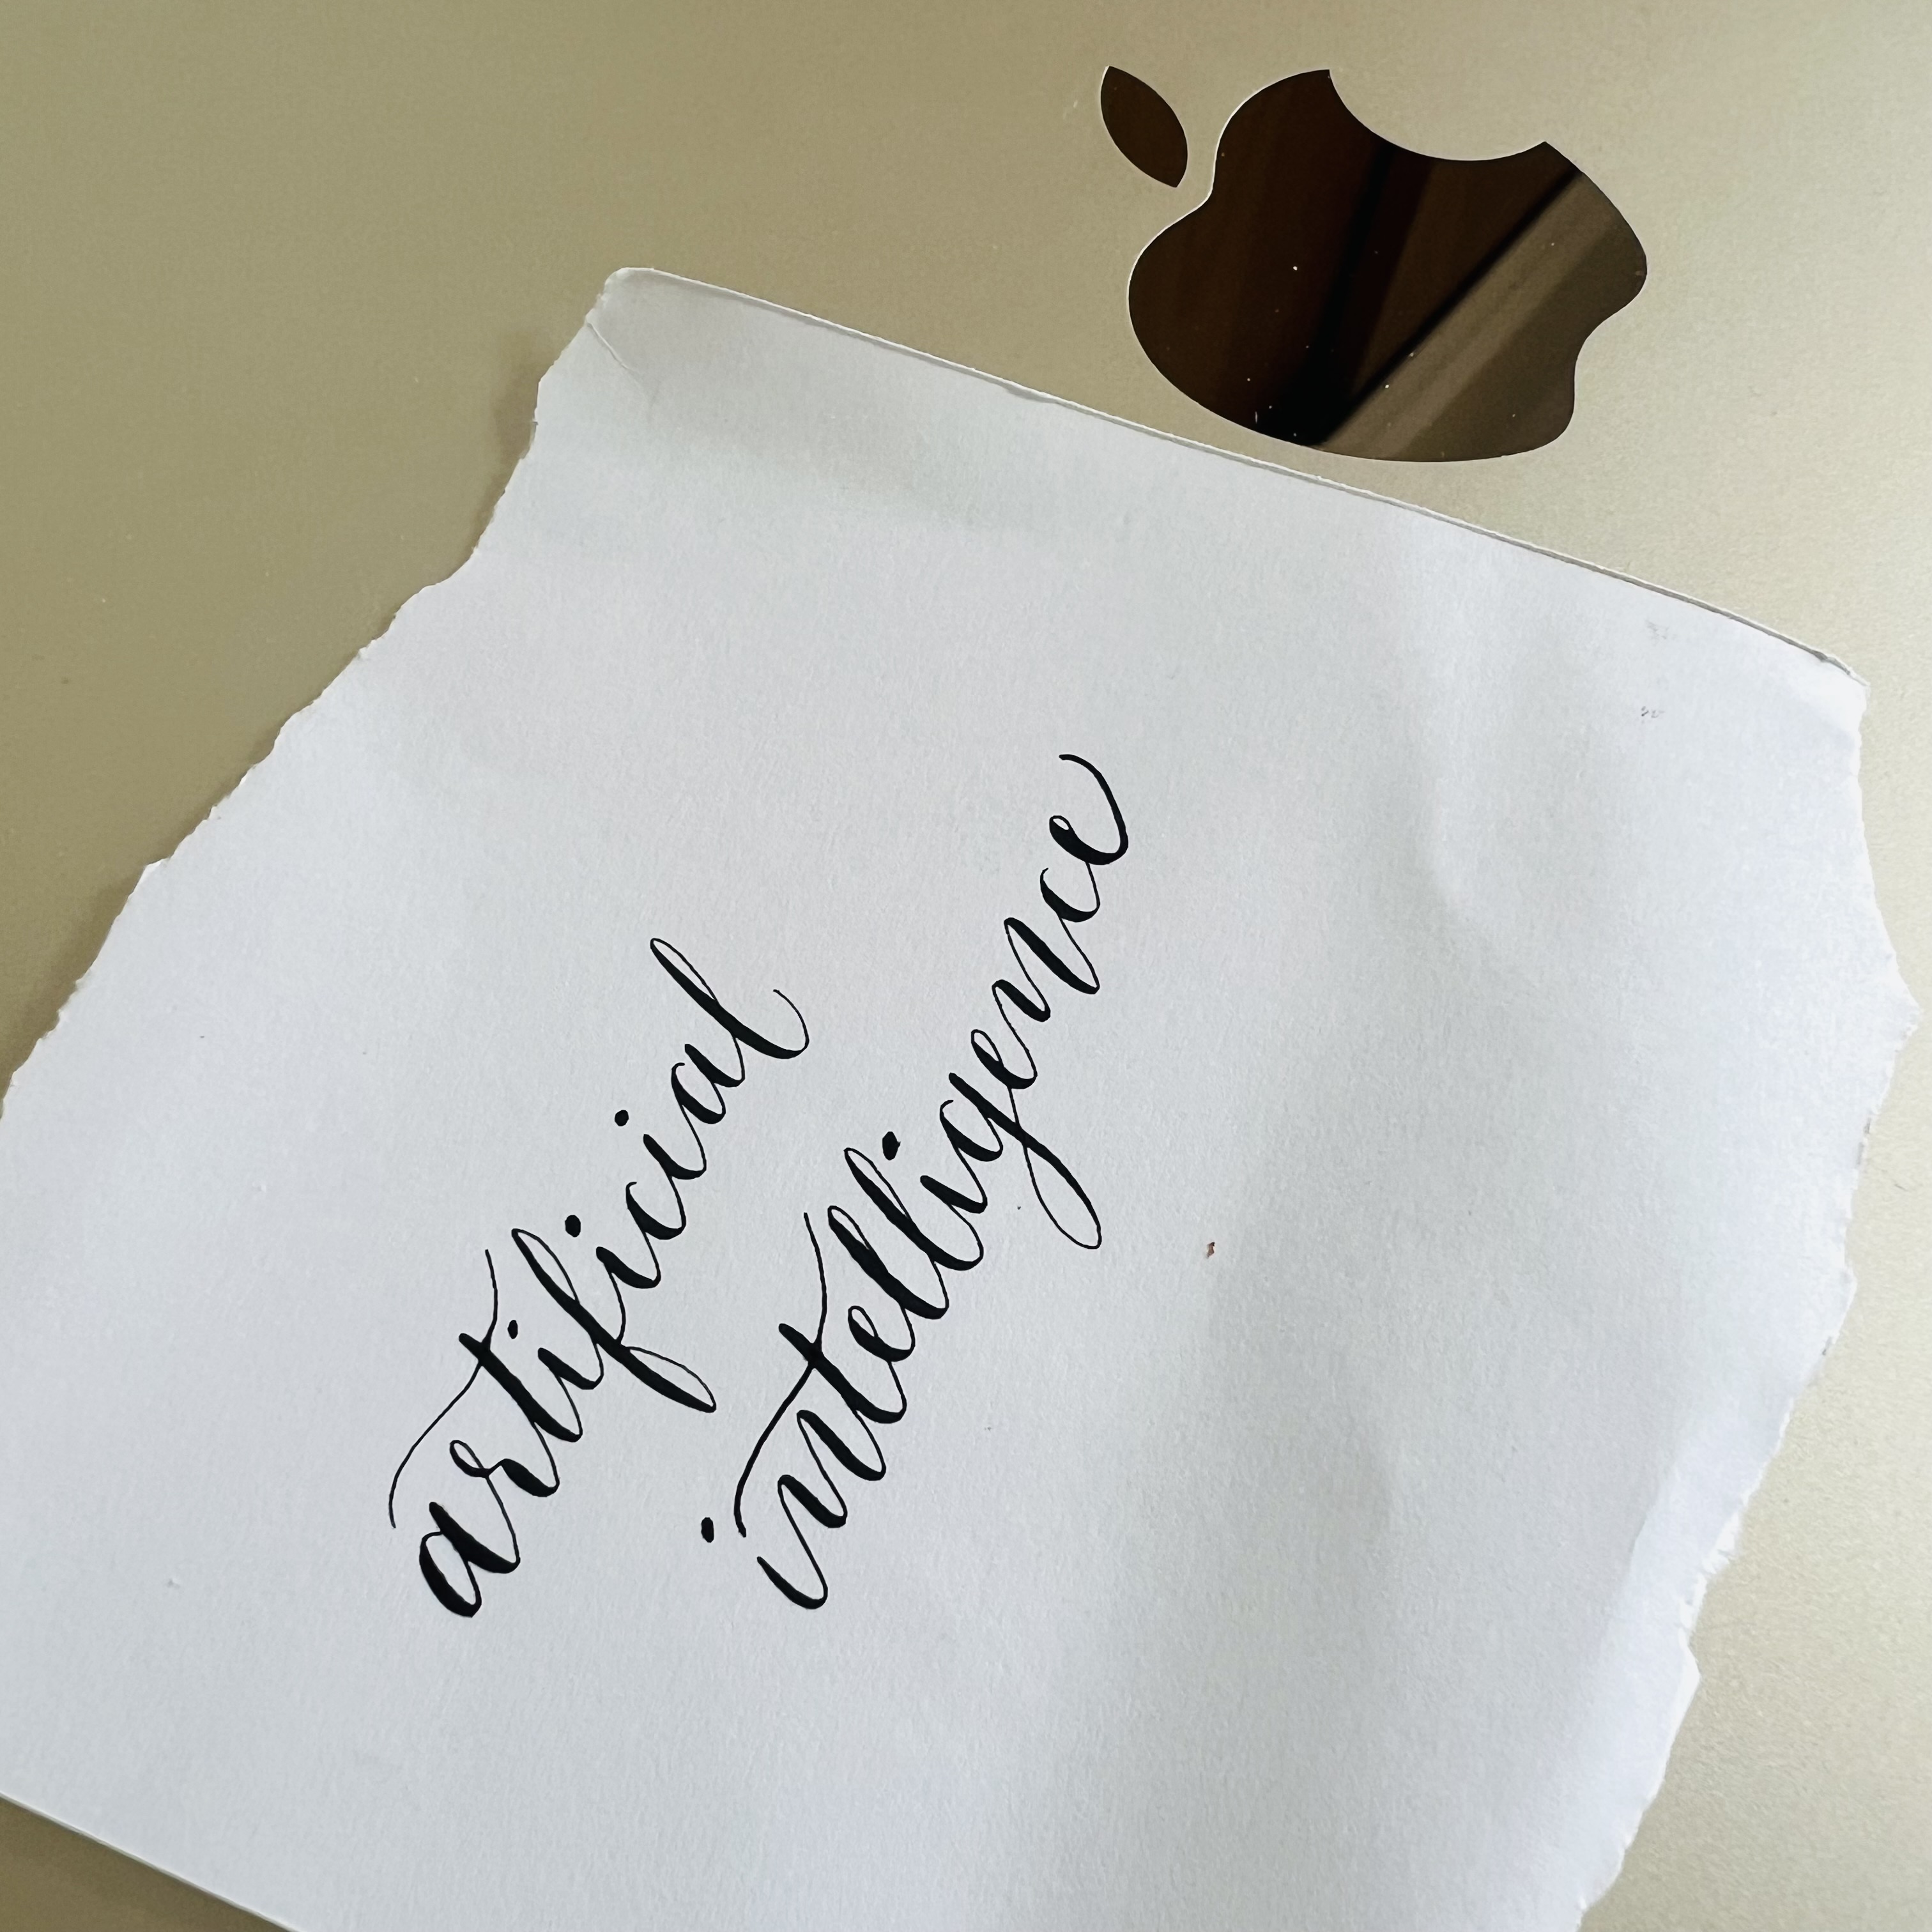 artificial
intelligence